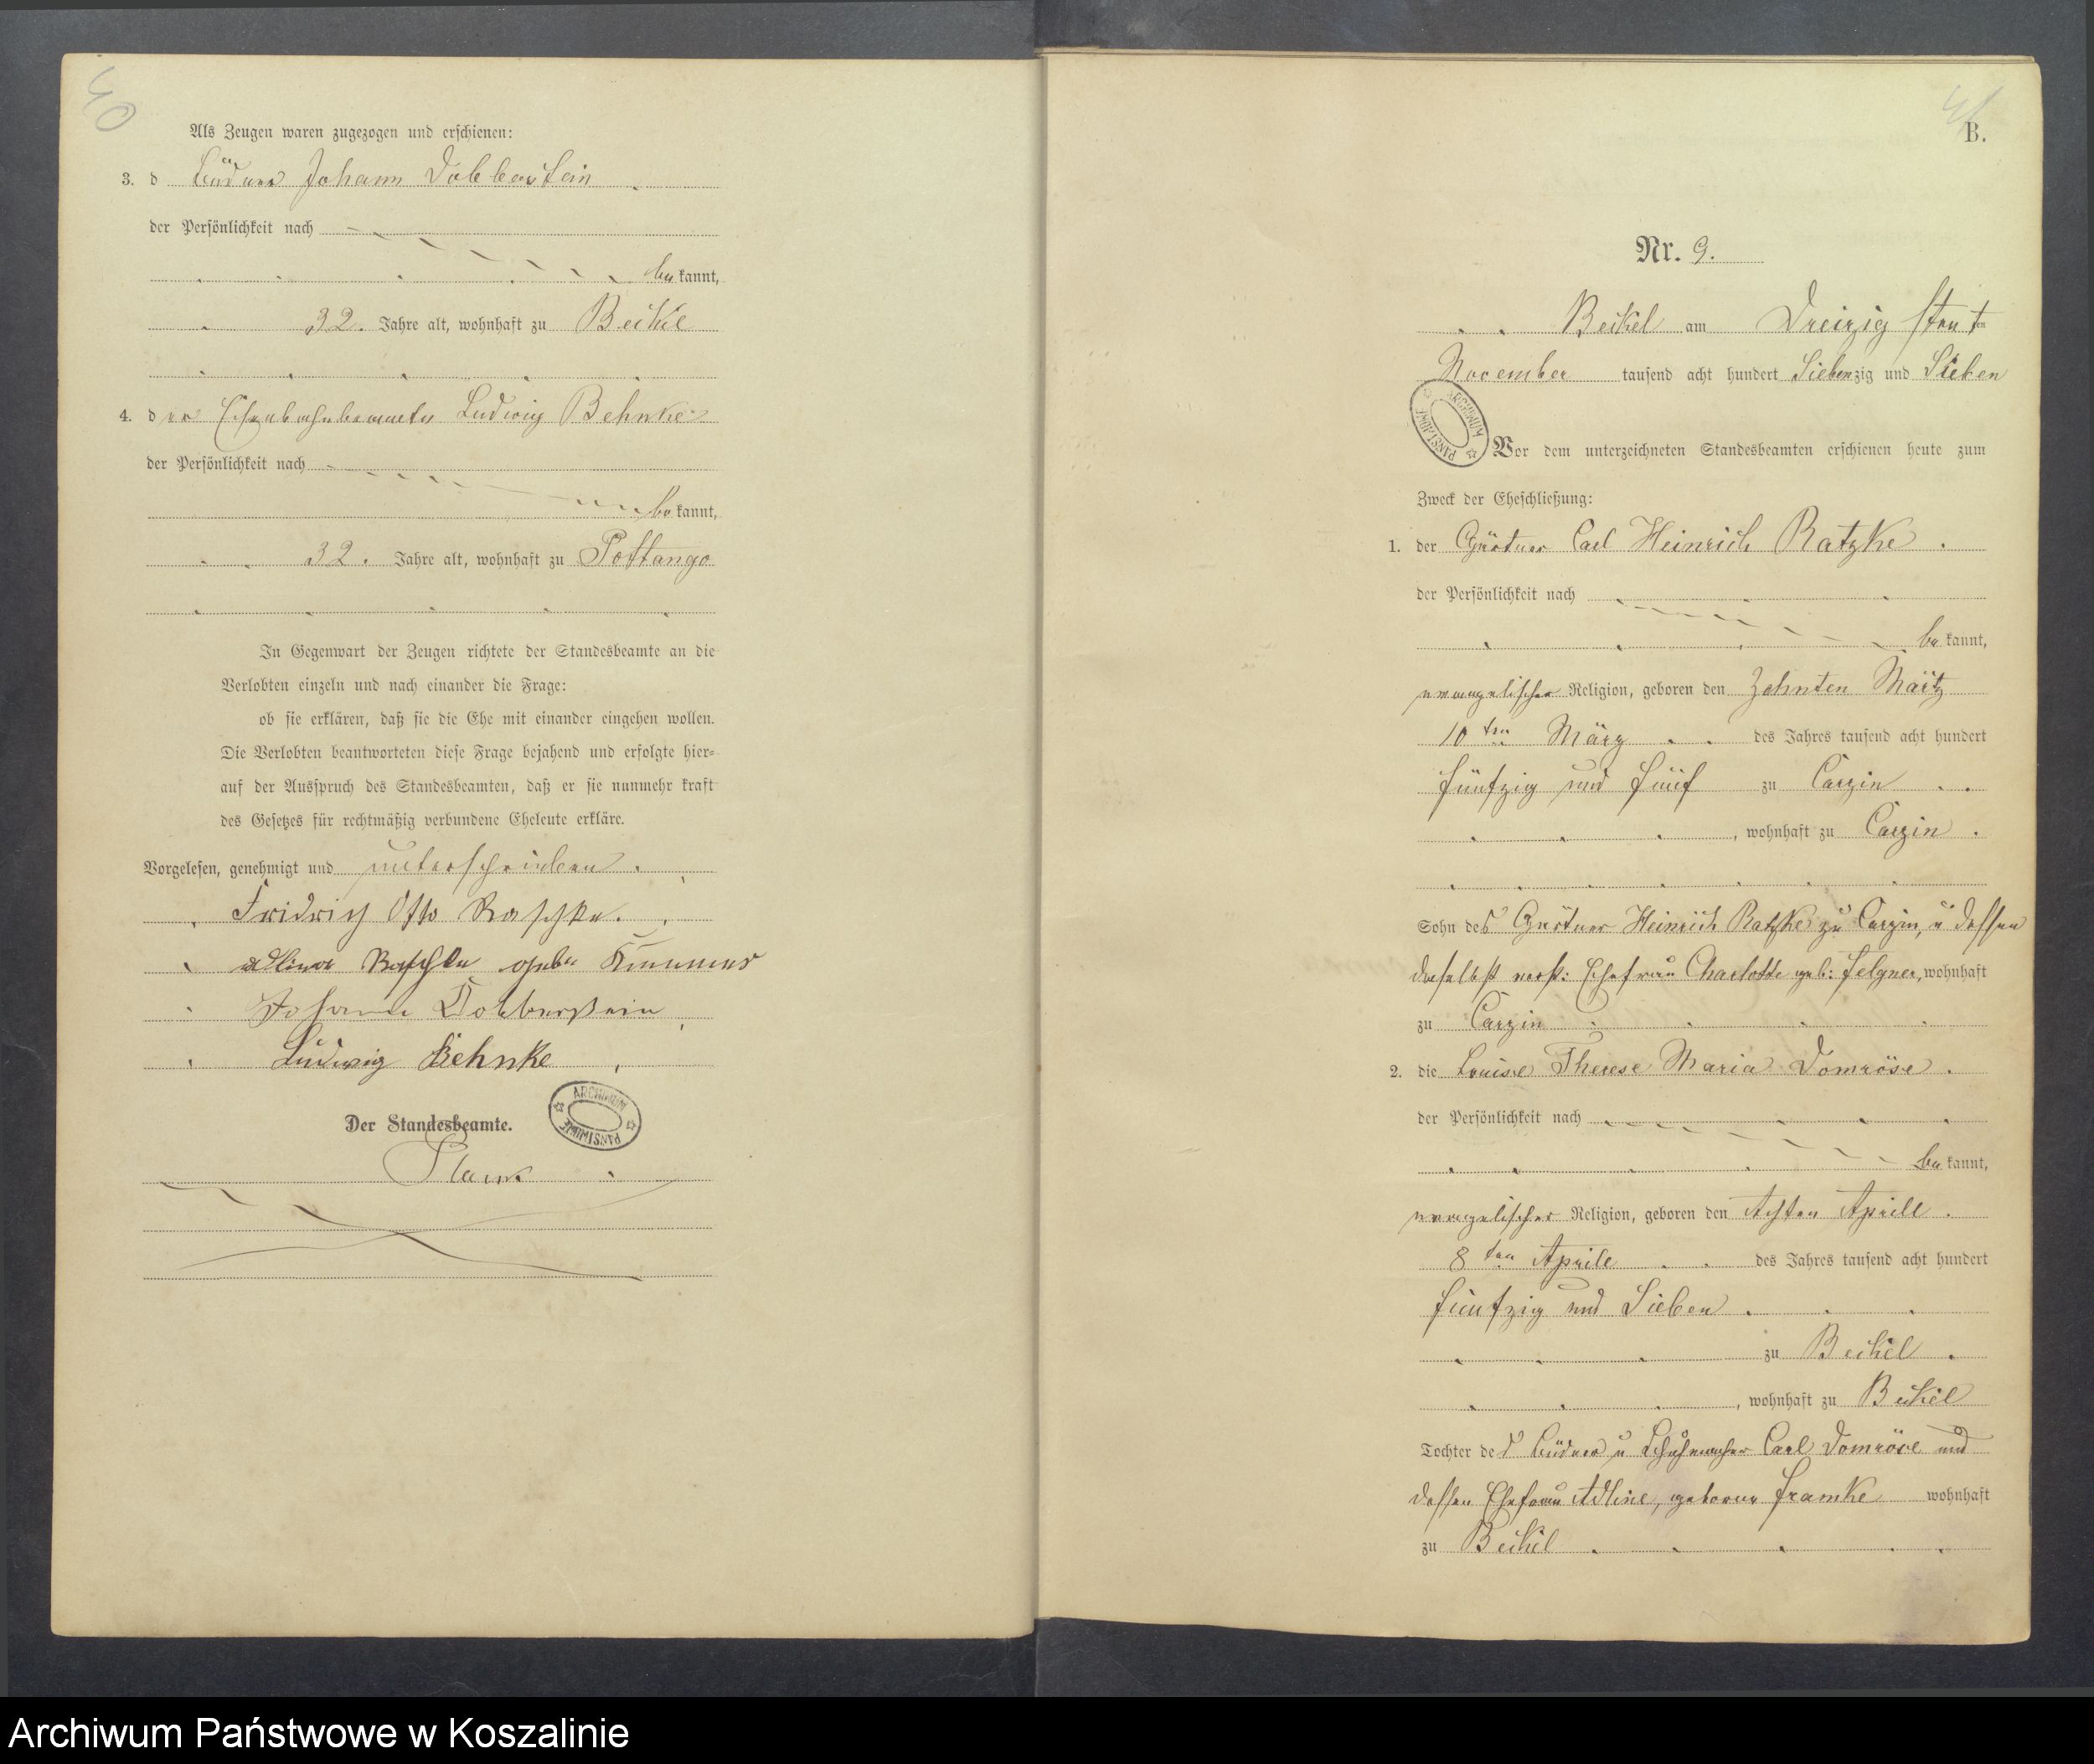 40
Als Zeugen waren zugezogen und erschienen:
3. d Büdner Johann Dobberstein
der Persönlichkeit nach
be kannt,
32. Jahre alt, wohnhaft zu Beikel
4. der Eisenbahnbeamte Ludwig Behnke
der Persönlichkeit nach
be kannt,
32. Jahre alt, wohnhaft zu Pottango
In Gegenwart der Zeugen richtete der Standesbeamte an die
Verlobten einzeln und nach einander die Frage:
ob sie erklären, daß sie die Ehe mit einander eingehen wollen.
Die Verlobten beantworteten diese Frage bejahend und erfolgte hier-
auf der Ausspruch des Standesbeamten, daß er sie nunmehr kraft
des Gesetzes für rechtmäßig verbundene Eheleute erkläre.
Vorgelesen, genehmigt und unterschrieben.
Fridrich Otto Raschke.
Raschke
Johann Dobberstein
Ludwig Behnke
Der Standesbeamte.
ARCHIWUM PAŃSTWOWE
41
B.
Nr. 9.
Beikel am Dreizigsten ten
November tausend acht hundert Siebenzig und Sieben
ARCHIWUM PAŃSTWOWE
Vor dem unterzeichneten Standesbeamten erschienen heute zum
Zweck der Eheschließung:
1. der Gärtner Carl Heinrich Ratzke.
der Persönlichkeit nach
be kannt,
evangelischer Religion, geboren den Zehnten Märtz
10 ten März des Jahres tausend acht hundert
fünfzig und fünf zu Carzin
, wohnhaft zu Carzin.
Sohn des Gärtner Heinrich Ratzke zu Carzin, u dessen
daselbst verst: Ehefrau Charlotte geb: Felgner, wohnhaft
zu Carzin
2. die Louise Therese Maria Domröse.
der Persönlichkeit nach
be kannt,
evangelischer Religion, geboren den Achten Aprill.
8 ten Aprile des Jahres tausend acht hundert
fünfzig und Sieben.
zu Beikel.
, wohnhaft zu Beikel
Tochter des Büdner u Schuhmacher Carl Domröse und
dessen Ehefrau Adline, geborne Framke wohnhaft
zu Beikel
Archiwum Państwowe w Koszalinie